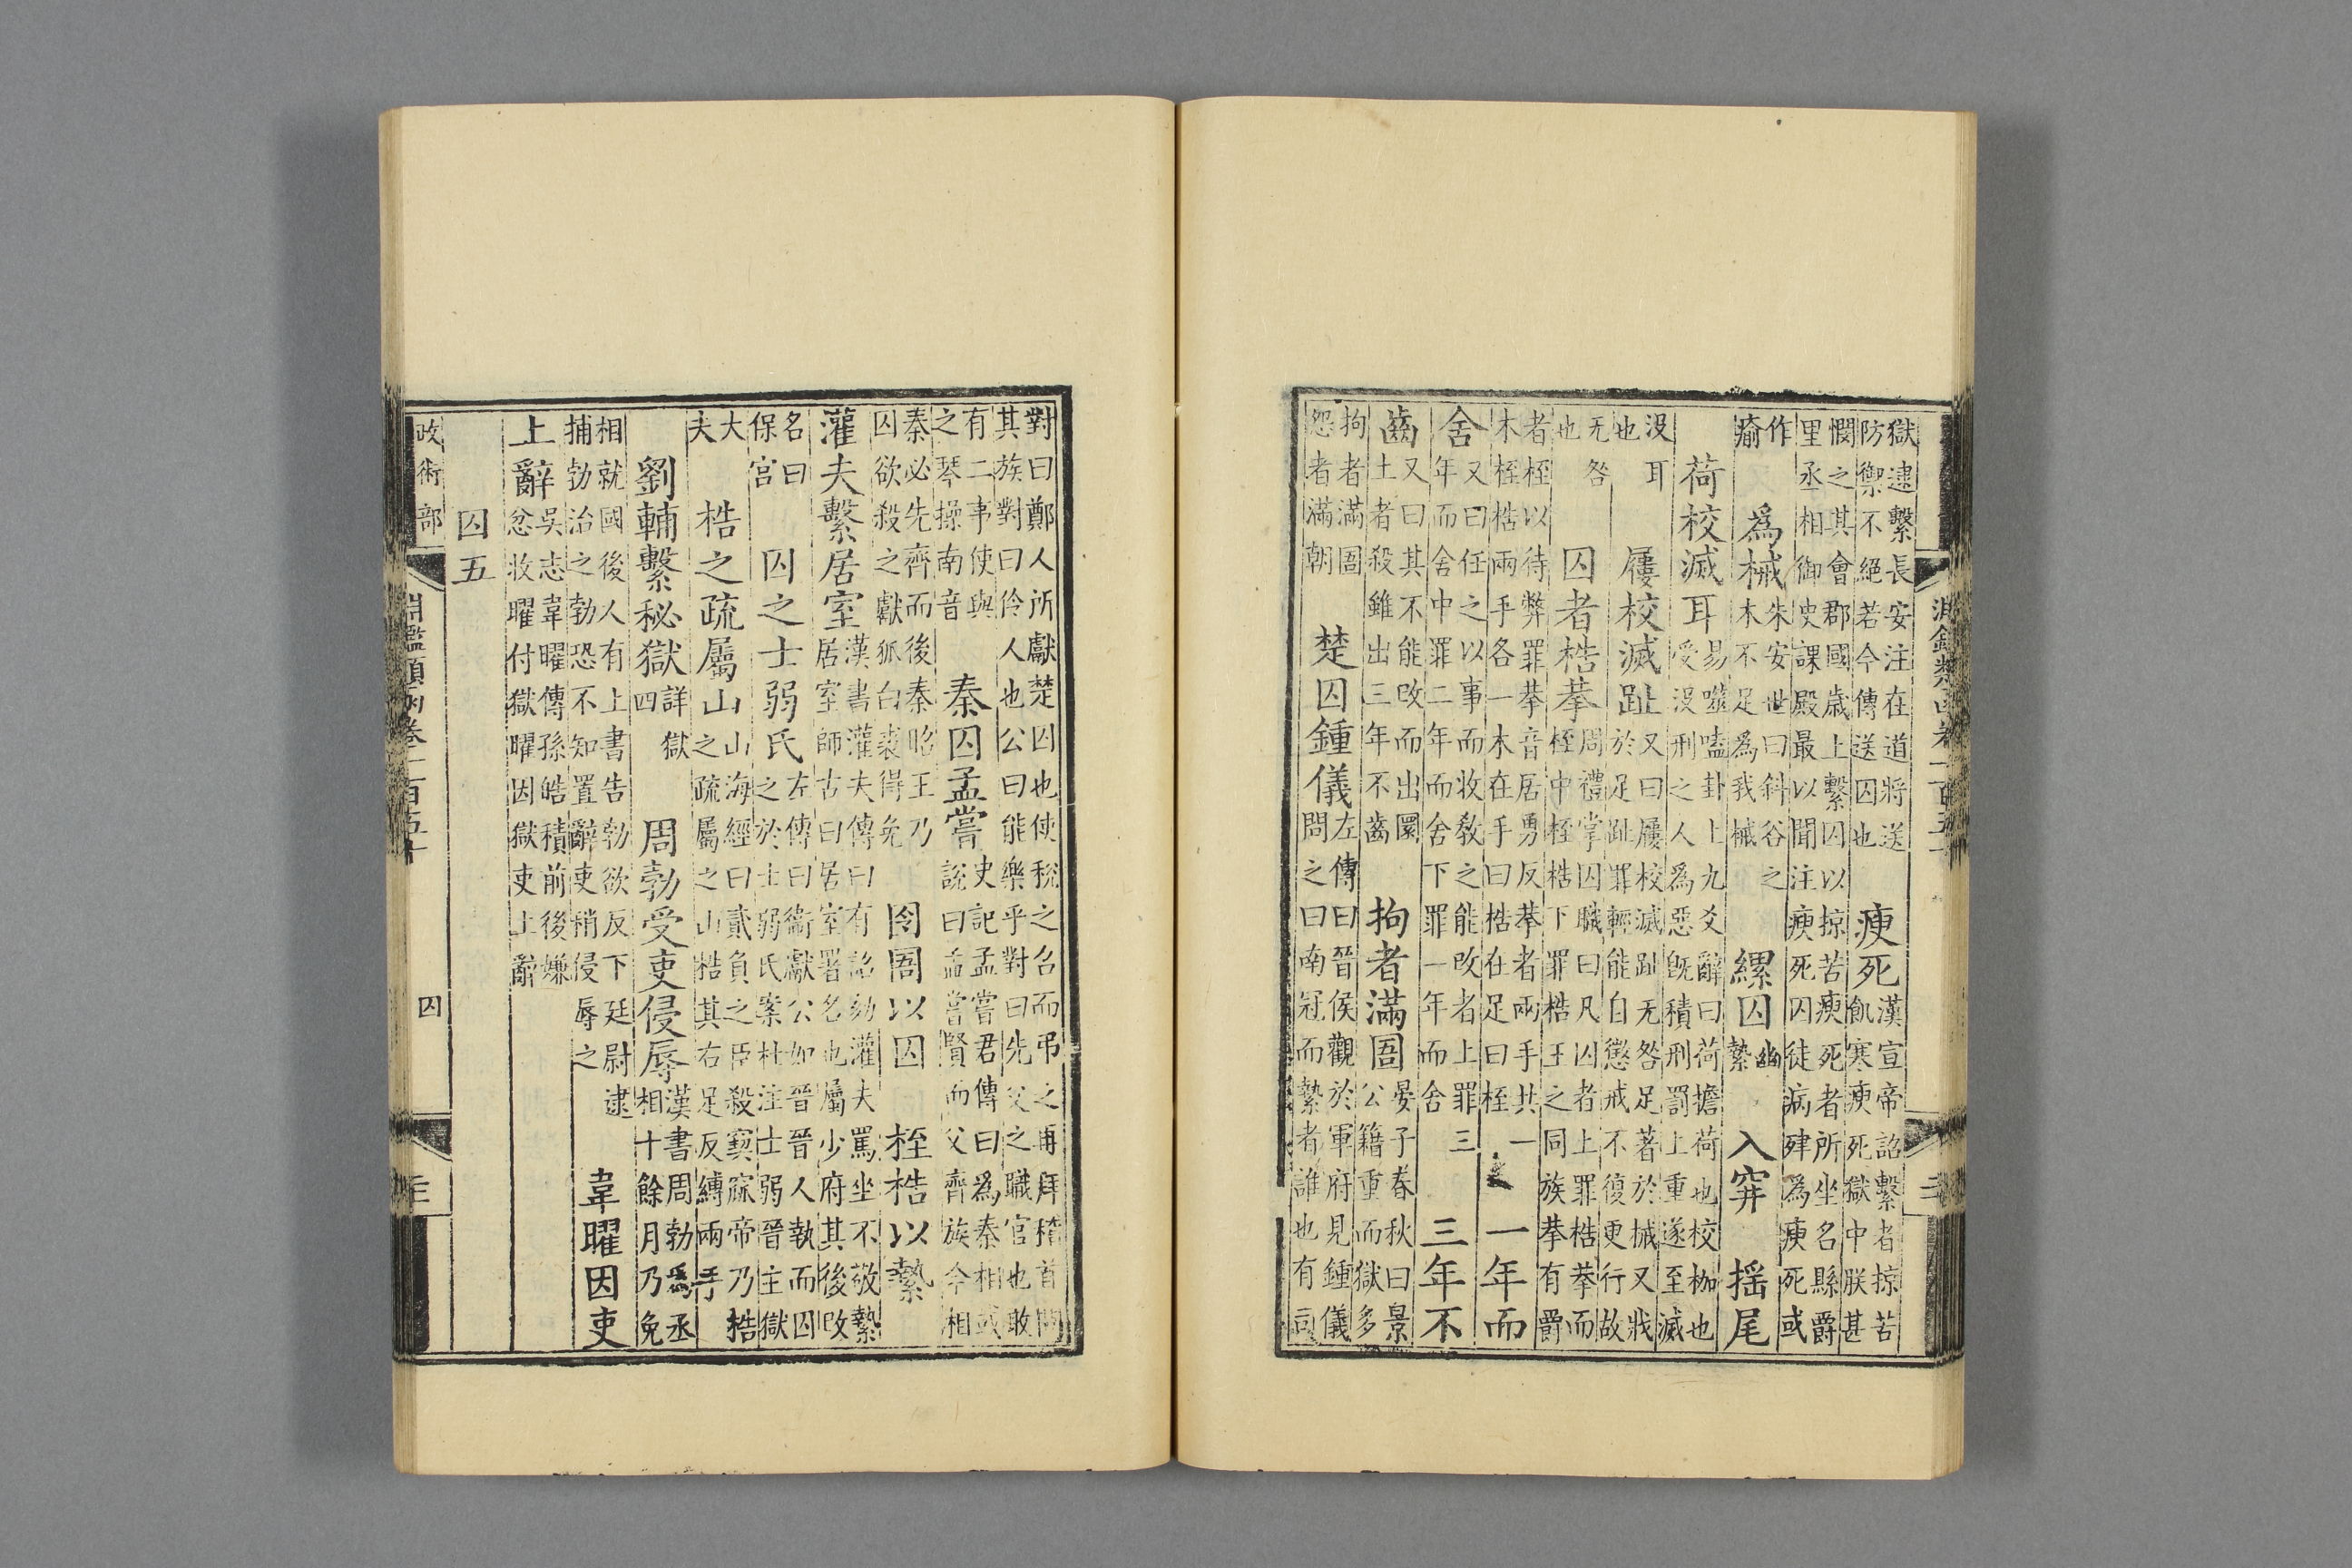 淵鑑類函卷一百五十
獄逮繫長安注在道將送
防禦不絕若今傳送囚也
瘐死
漢宣帝詔繫者掠苦
飢寒瘐死獄中朕甚
憫之其會郡國歳上繫囚以掠苦瘐死者所坐名縣爵
里丞相御史課殿最以聞注瘐死囚徒病肂爲瘐死或
作
瘉
爲械
朱安世曰斜谷之
木不足爲我械
縲囚
幽
縶
入穽
揺尾
荷校滅耳
易噬嗑卦上九爻辭曰荷擔荷也校枷也
受没刑之人爲惡旣積刑罰上重遂至滅
没耳
也
屨校滅趾
又曰屨校滅趾无咎足著於械又戕
於足趾罪輕能自懲戒不復更行故
无咎
也
囚者梏拲
周禮掌囚職曰凡囚者上罪梏拲而
桎中桎梏下罪梏王之同族拲有爵
者桎以待弊罪拲音居勇反拲者兩手共一
木桎梏兩手各一木在手曰梏在足曰桎
一年而
舍
又曰任之以事而收敎之能改者上罪三
年而舍中罪二年而舍下罪一年而舍
三年不
齒
又曰其不能改而出圜
土者殺雖出三年不齒
拘者滿圄
晏子春秋曰景
公籍重而獄多
拘者滿圄
怨者滿朝
楚囚鍾儀
左傳曰晉侯觀於軍府見鍾儀
問之曰南冠而縶者誰也有司
對曰鄭人所獻楚囚也使稅之召而弔之再拜稽首問
其族對曰伶人也公曰能樂乎對曰先父之職官也敢
有二事使與
之琴操南音
秦囚孟嘗
史記孟嘗君傳曰爲秦相或
說曰孟嘗賢而父齊族今相
秦必先齊而後秦昭王乃
囚欲殺之獻狐白裘得免
囹圄以囚
桎梏以縶
灌夫繫居室
漢書灌夫傳曰有詔劾灌夫罵坐不敬縶
居室師古曰居室署名也屬少府其後改
名曰
保宮
囚之士弱氏
左傳曰衞獻公如晉晉人執而囚
之於士弱氏案杜注士弱晉主獄
大
夫
梏之疏屬山
山海經曰貳負之臣殺窫窳帝乃梏
之疏屬之山梏其右足反縛兩手
劉輔繫秘獄
詳獄
四
周勃受吏侵辱
漢書周勃爲丞
相十餘月乃免
相就國後人有上書告勃欲反下廷尉逮
捕勃治之勃恐不知置辭吏稍侵辱之
韋曜因吏
上辭
吳志韋曜傳孫皓積前後嫌
忿收曜付獄曜因獄吏上辭
囚五
政術部
淵鑑類函卷一百五十
囚
三